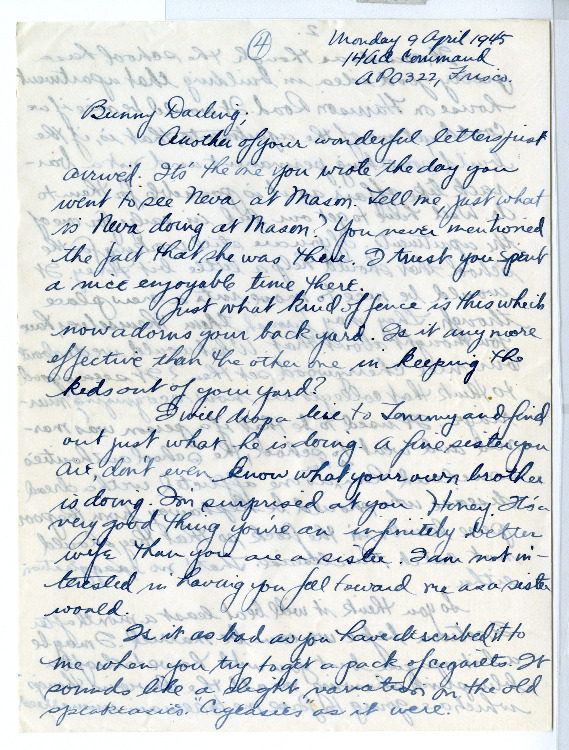 4
Monday 9 April 1945
14AD Command
APO322, Frisco.
Bunny Darling;
Another of your wonderful letters just
arrived. It's the one you wrote the day you
went to see Neva at Mason. Tell me, just what
is Neva doing at Mason? You never mentioned
the fact that she was there. I trust you spent
a nice enjoyable time there.
Just what kind of fence is this which
now adorns your back yard. Is it any more
effective than the other one in keeping the
kids out of your yard?
I will drop a line to Tommy and find
out just what he is doing. A fine sister you
are, don't even know what your own brother
is doing. I'm surprised at you Honey. It's a
very good thing you're an infinitely better
wife than you are a sister. I am not in-
terested in having you feel toward me as a sister
would.
Is it as bad as you have described it to
me when you try to get a pack of cigarets. It
sounds like a slight variation on the old
speakeasies. "Cigeasies" as it were.